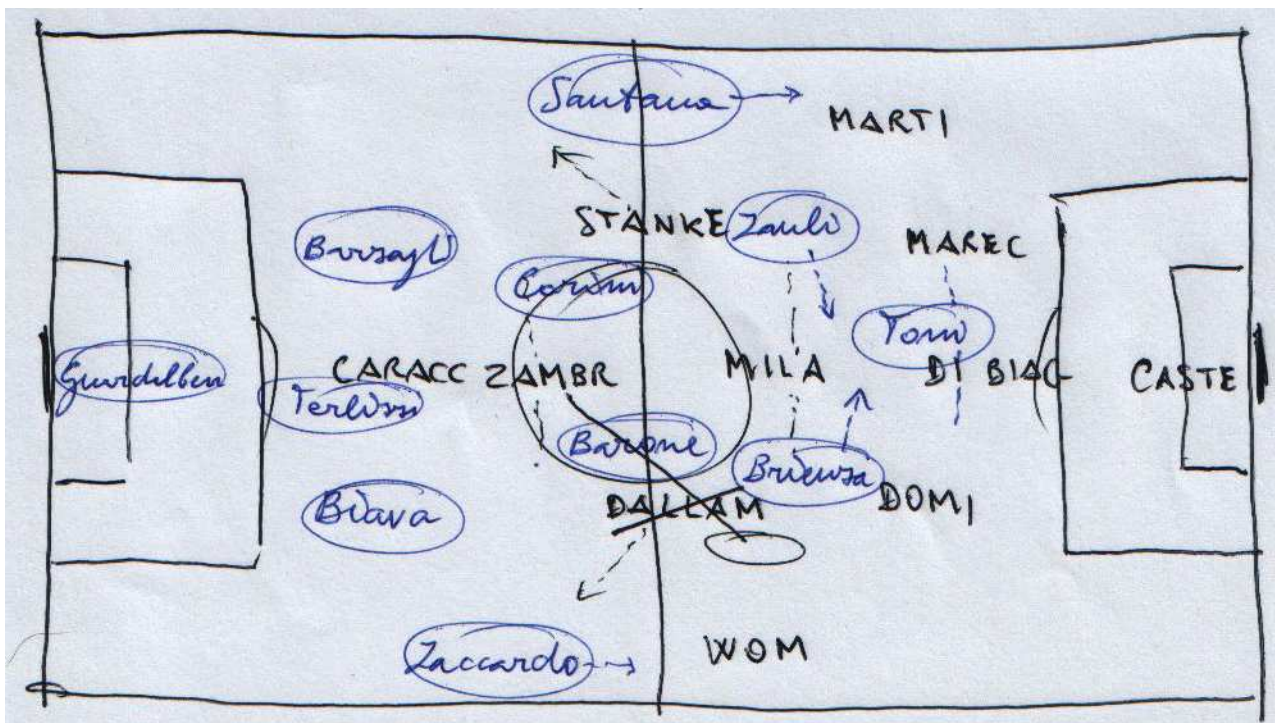 Santana
MARTI
STANKE Zauli
MAREC
Barzagli
Corini
Toni
Guardalben
CARACC ZAMBR MILA DI BIAG CASTE
Terlizzi
Barone
Brienza
DOMI
Biava
DALLAM
Zaccardo
WOM